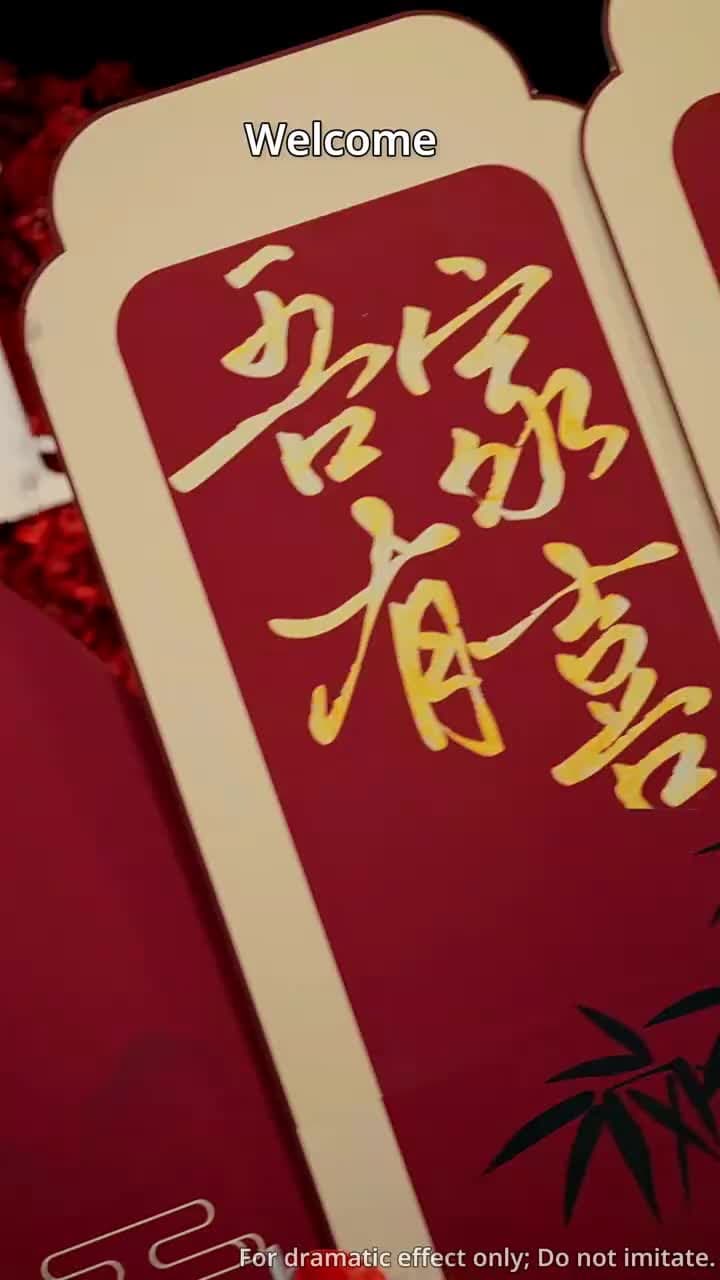 Welcome
吾家
有喜
For dramatic effect only; Do not imitate.